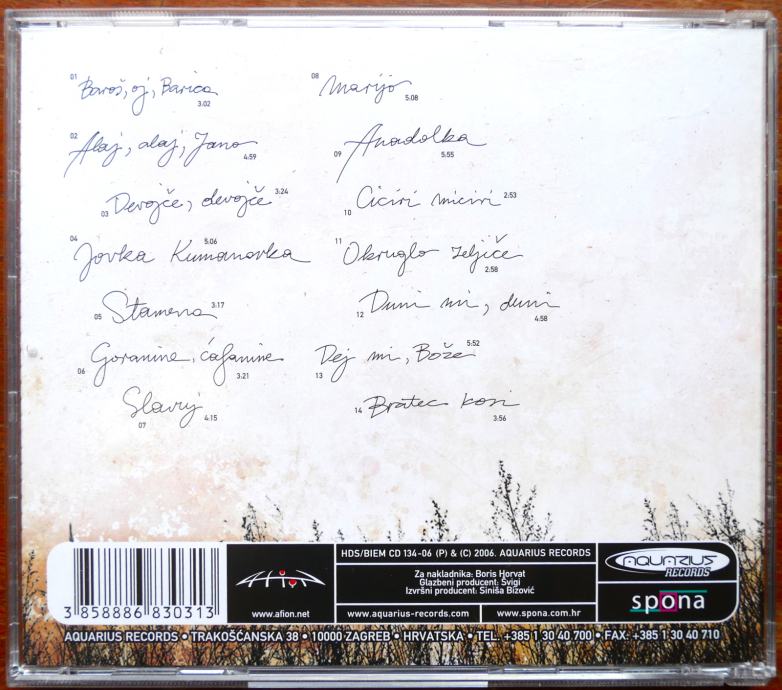 01 Baroš, oj, Barica 3.02
02 Alaj, alaj, Jano 4:59
03 Devojče, devojče 3:24
04 Jovka Kumanovka 5.06
05 Stamena 3.17
06 Goranine, ćafanine 3.21
07 Slavuj 4.15
08 Marijo 5.08
09 Anadolka 5:55
10 Ciciri miciri 2:53
11 Okruglo zeljiče 2:58
12 Duni mi, duni 4:58
13 Dej mi, Bože 5:52
14 Bratec kosi 3:56
3 858886 830313
afion
www.afion.net
HDS/BIEM CD 134-06 (P) & (C) 2006. AQUARIUS RECORDS
Za nakladnika: Boris Horvat
Glazbeni producent: Švigi
Izvršni producent: Siniša Bizović
www.aquarius-records.com
www.spona.com.hr
AQUARIUS
RECORDS
spona
AQUARIUS RECORDS • TRAKOŠĆANSKA 38 • 10000 ZAGREB • HRVATSKA • TEL. +385 1 30 40 700 • FAX: +385 1 30 40 710